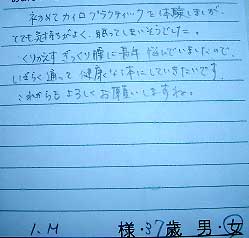 初めてカイロプラクティックを体験しましたが、
とても気持ちがよく、眠ってしまいそうでした。
くりかえすぎっくり腰に長年悩んでいましたので、
しばらく通って健康な体にしていきたいです。
これからもよろしくお願いしますね。
I.M 様・37歳 男・女